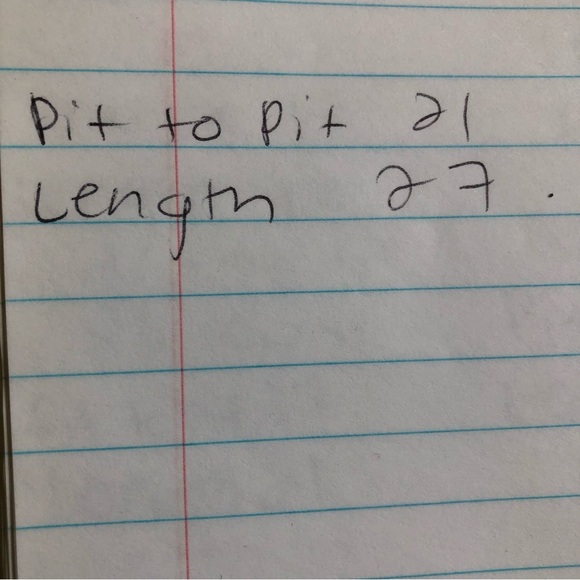 Pit to Pit 21
Length 27.